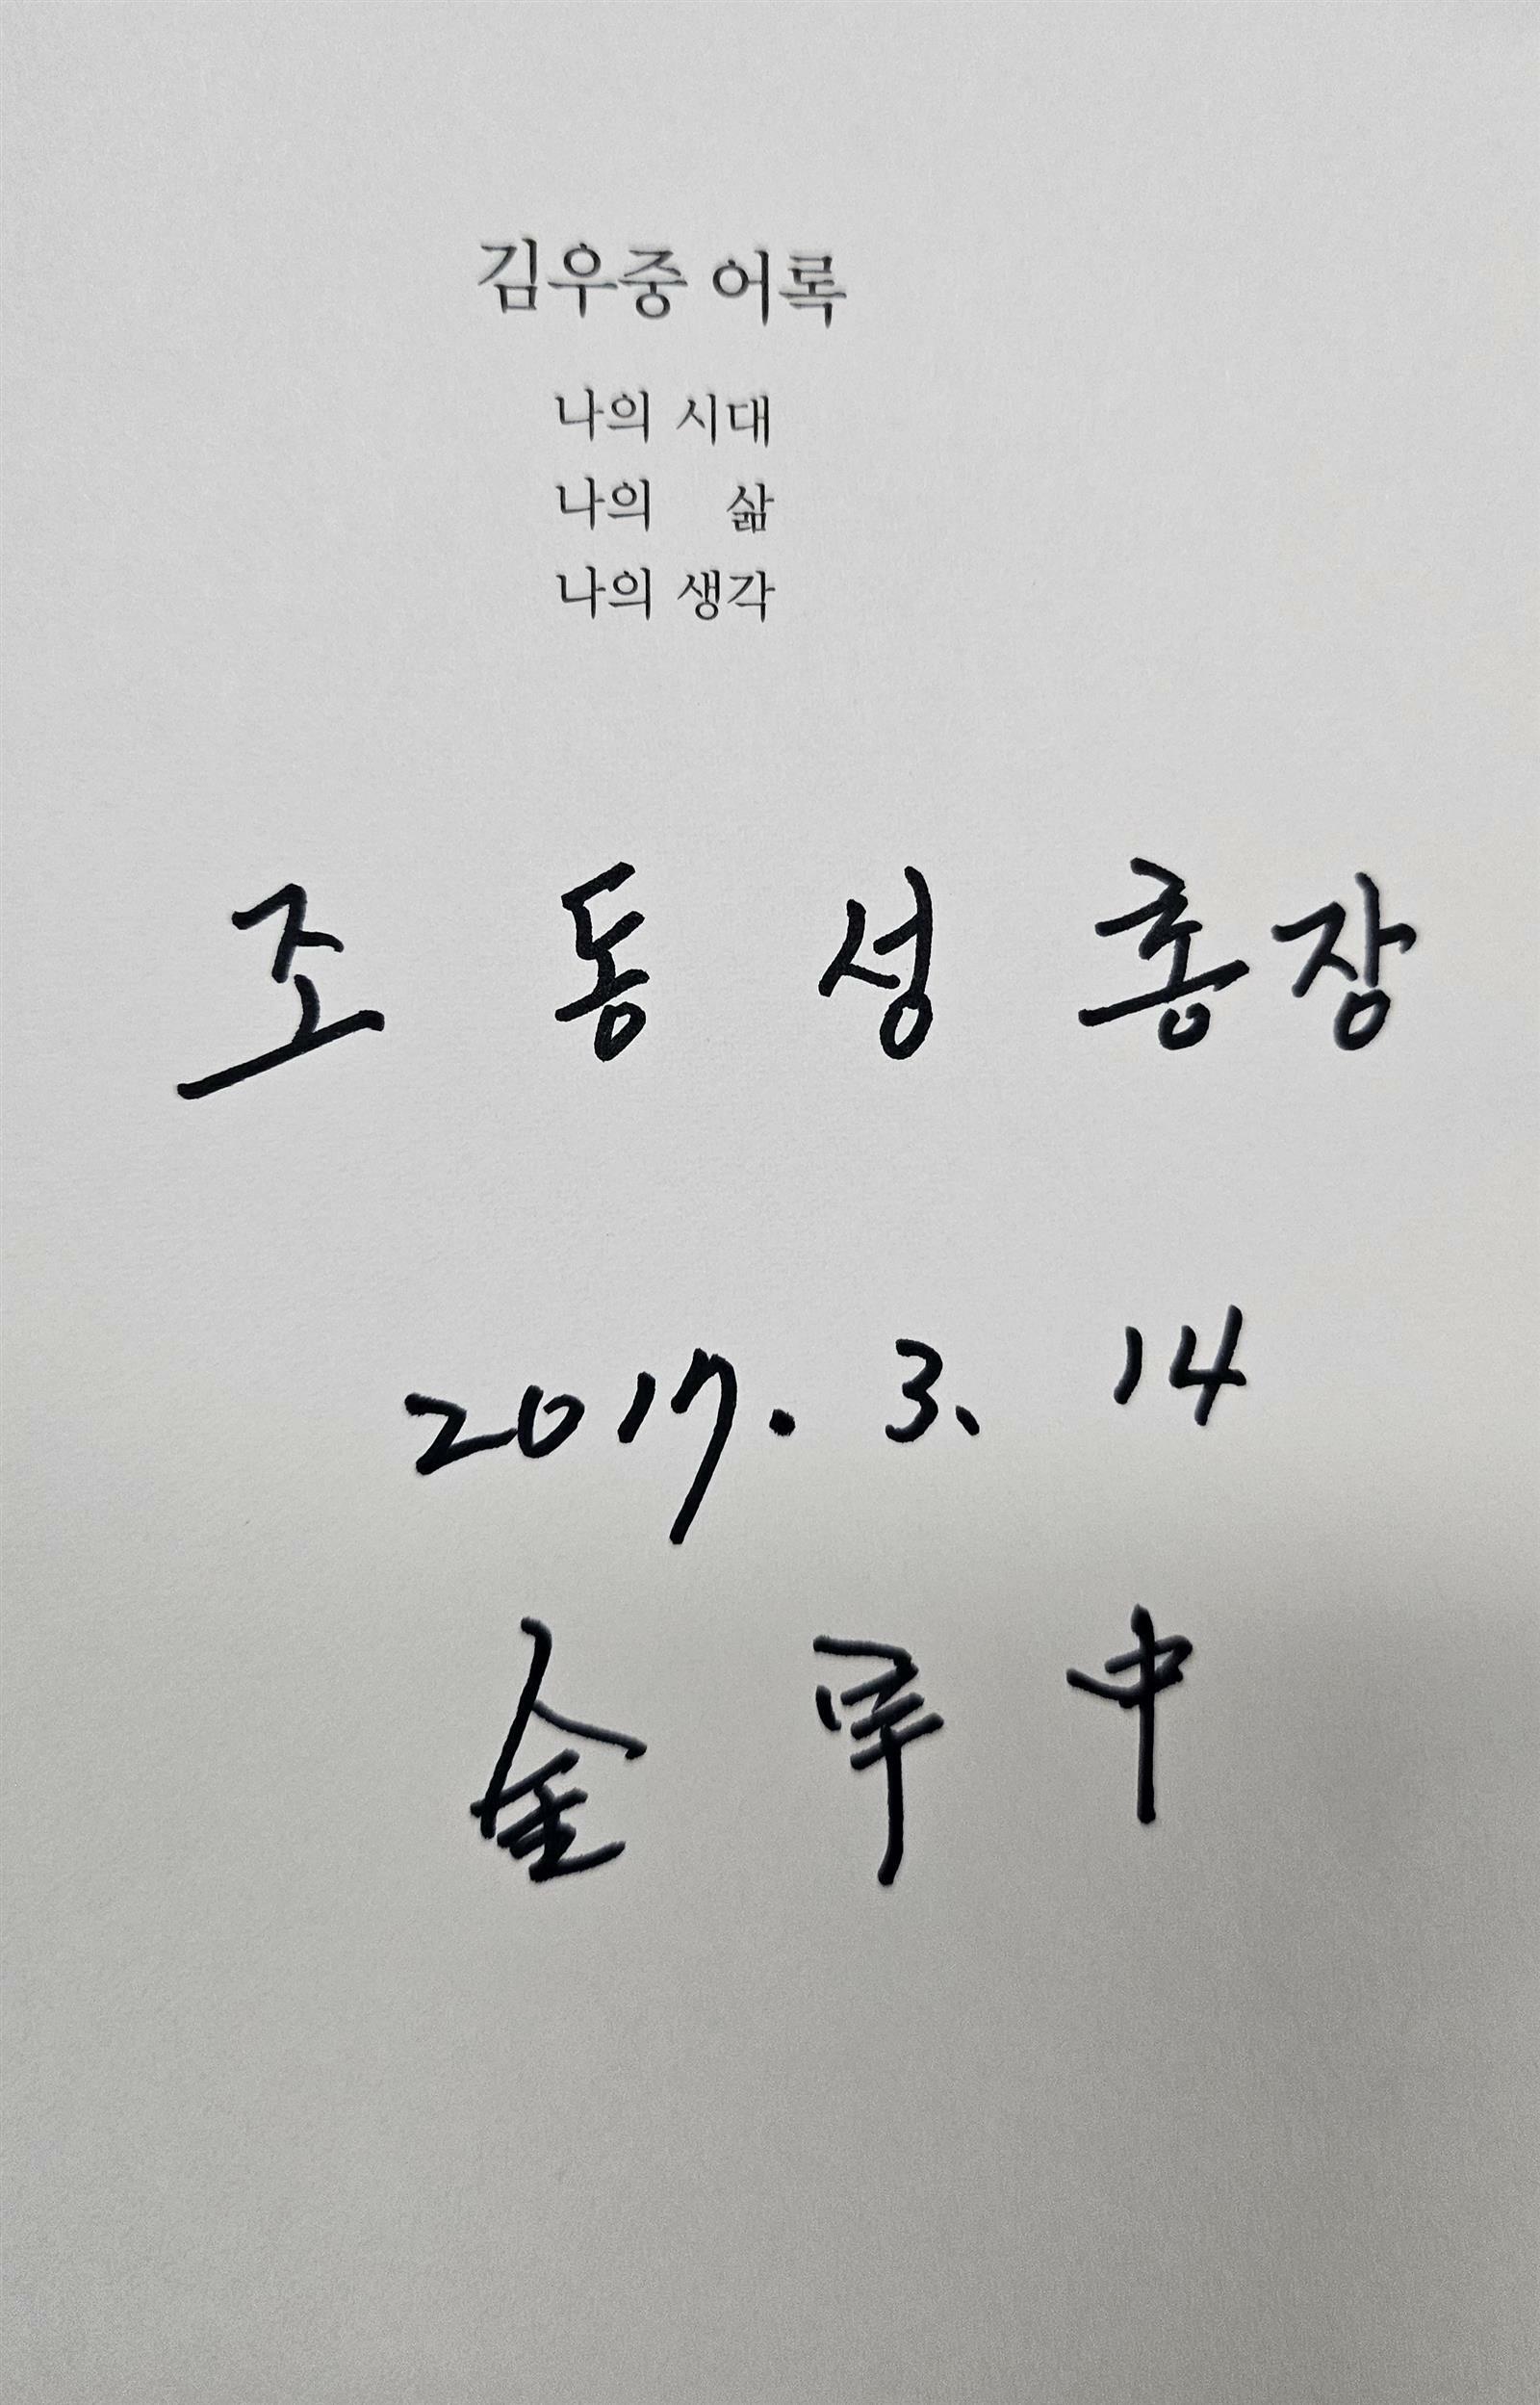 김우중 어록
나의 시대
나의 삶
나의 생각
조 동 성 총장
2017. 3. 14
金 宇 中